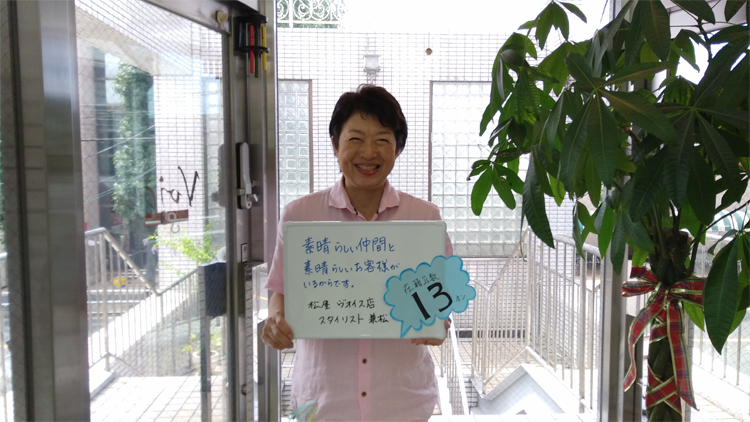 素晴らしい仲間と
素晴らしいお客様が
いるからです。
松屋 ヴオイス店
スタイリスト 兼松
在籍年数
13